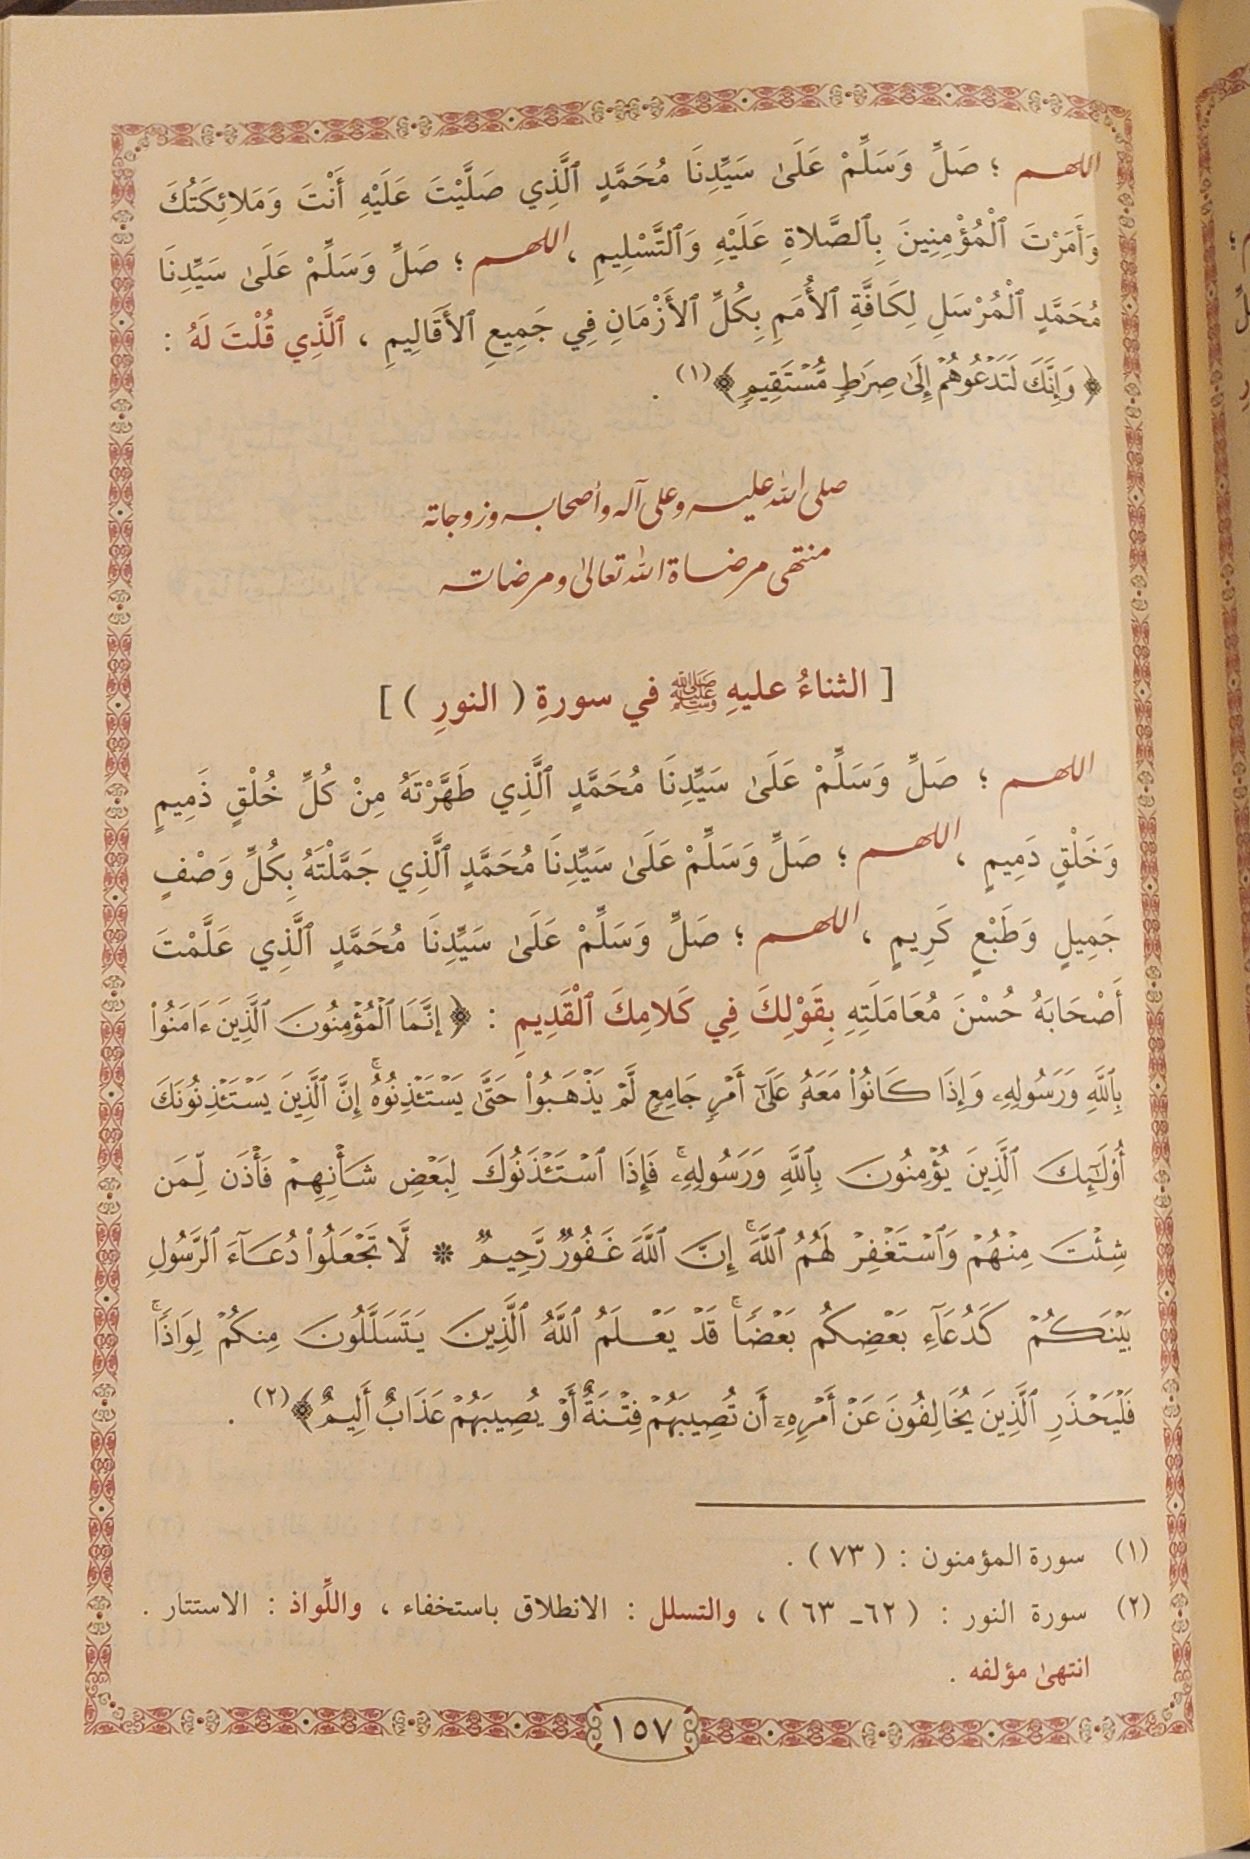 اللهم ؛ صَلِّ وَسَلِّمْ عَلَىٰ سَيِّدِنَا مُحَمَّدٍ ٱلَّذِي صَلَّيْتَ عَلَيْهِ أَنْتَ وَمَلائِكَتُكَ
وَأَمَرْتَ ٱلْمُؤْمِنِينَ بِٱلصَّلاةِ عَلَيْهِ وَٱلتَّسْلِيمِ ، اللهم ؛ صَلِّ وَسَلِّمْ عَلَىٰ سَيِّدِنَا
مُحَمَّدٍ ٱلْمُرْسَلِ لِكَافَّةِ ٱلأُمَمِ بِكُلِّ ٱلأَزْمَانِ فِي جَمِيعِ ٱلأَقَالِيمِ ، ٱلَّذِي قُلْتَ لَهُ :
﴿ وَإِنَّكَ لَتَدْعُوهُمْ إِلَىٰ صِرَٰطٍ مُّسْتَقِيمٍ ﴾(١) .
صلى الله عليه وعلى آله وأصحابه وزوجاته
منتهى مرضاة الله تعالىٰ ومرضاته
[ الثناءُ عليهِ ﷺ في سورةِ ( النورِ ) ]
اللهم ؛ صَلِّ وَسَلِّمْ عَلَىٰ سَيِّدِنَا مُحَمَّدٍ ٱلَّذِي طَهَّرْتَهُ مِنْ كُلِّ خُلْقٍ ذَمِيمٍ
وَخَلْقٍ دَمِيمٍ ، اللهم ؛ صَلِّ وَسَلِّمْ عَلَىٰ سَيِّدِنَا مُحَمَّدٍ ٱلَّذِي جَمَّلْتَهُ بِكُلِّ وَصْفٍ
جَمِيلٍ وَطَبْعٍ كَرِيمٍ ، اللهم ؛ صَلِّ وَسَلِّمْ عَلَىٰ سَيِّدِنَا مُحَمَّدٍ ٱلَّذِي عَلَّمْتَ
أَصْحَابَهُ حُسْنَ مُعَامَلَتِهِ بِقَوْلِكَ فِي كَلامِكَ ٱلْقَدِيمِ : ﴿ إِنَّمَا ٱلْمُؤْمِنُونَ ٱلَّذِينَ ءَامَنُوا۟
بِٱللَّهِ وَرَسُولِهِۦ وَإِذَا كَانُوا۟ مَعَهُۥ عَلَىٰٓ أَمْرٍ جَامِعٍ لَّمْ يَذْهَبُوا۟ حَتَّىٰ يَسْتَـْٔذِنُوهُ ۚ إِنَّ ٱلَّذِينَ يَسْتَـْٔذِنُونَكَ
أُو۟لَـٰٓئِكَ ٱلَّذِينَ يُؤْمِنُونَ بِٱللَّهِ وَرَسُولِهِۦ ۚ فَإِذَا ٱسْتَـْٔذَنُوكَ لِبَعْضِ شَأْنِهِمْ فَأْذَن لِّمَن
شِئْتَ مِنْهُمْ وَٱسْتَغْفِرْ لَهُمُ ٱللَّهَ ۚ إِنَّ ٱللَّهَ غَفُورٌ رَّحِيمٌ * لَّا تَجْعَلُوا۟ دُعَآءَ ٱلرَّسُولِ
بَيْنَكُمْ كَدُعَآءِ بَعْضِكُم بَعْضًا ۚ قَدْ يَعْلَمُ ٱللَّهُ ٱلَّذِينَ يَتَسَلَّلُونَ مِنكُمْ لِوَاذًا ۚ
فَلْيَحْذَرِ ٱلَّذِينَ يُخَالِفُونَ عَنْ أَمْرِهِۦٓ أَن تُصِيبَهُمْ فِتْنَةٌ أَوْ يُصِيبَهُمْ عَذَابٌ أَلِيمٌ ﴾(٢) .
(١) سورة المؤمنون : ( ٧٣ ) .
(٢) سورة النور : ( ٦٢ـ ٦٣ ) ، والتسلل : الانطلاق باستخفاء ، واللِّواذ : الاستتار .
انتهىٰ مؤلفه .
١٥٧